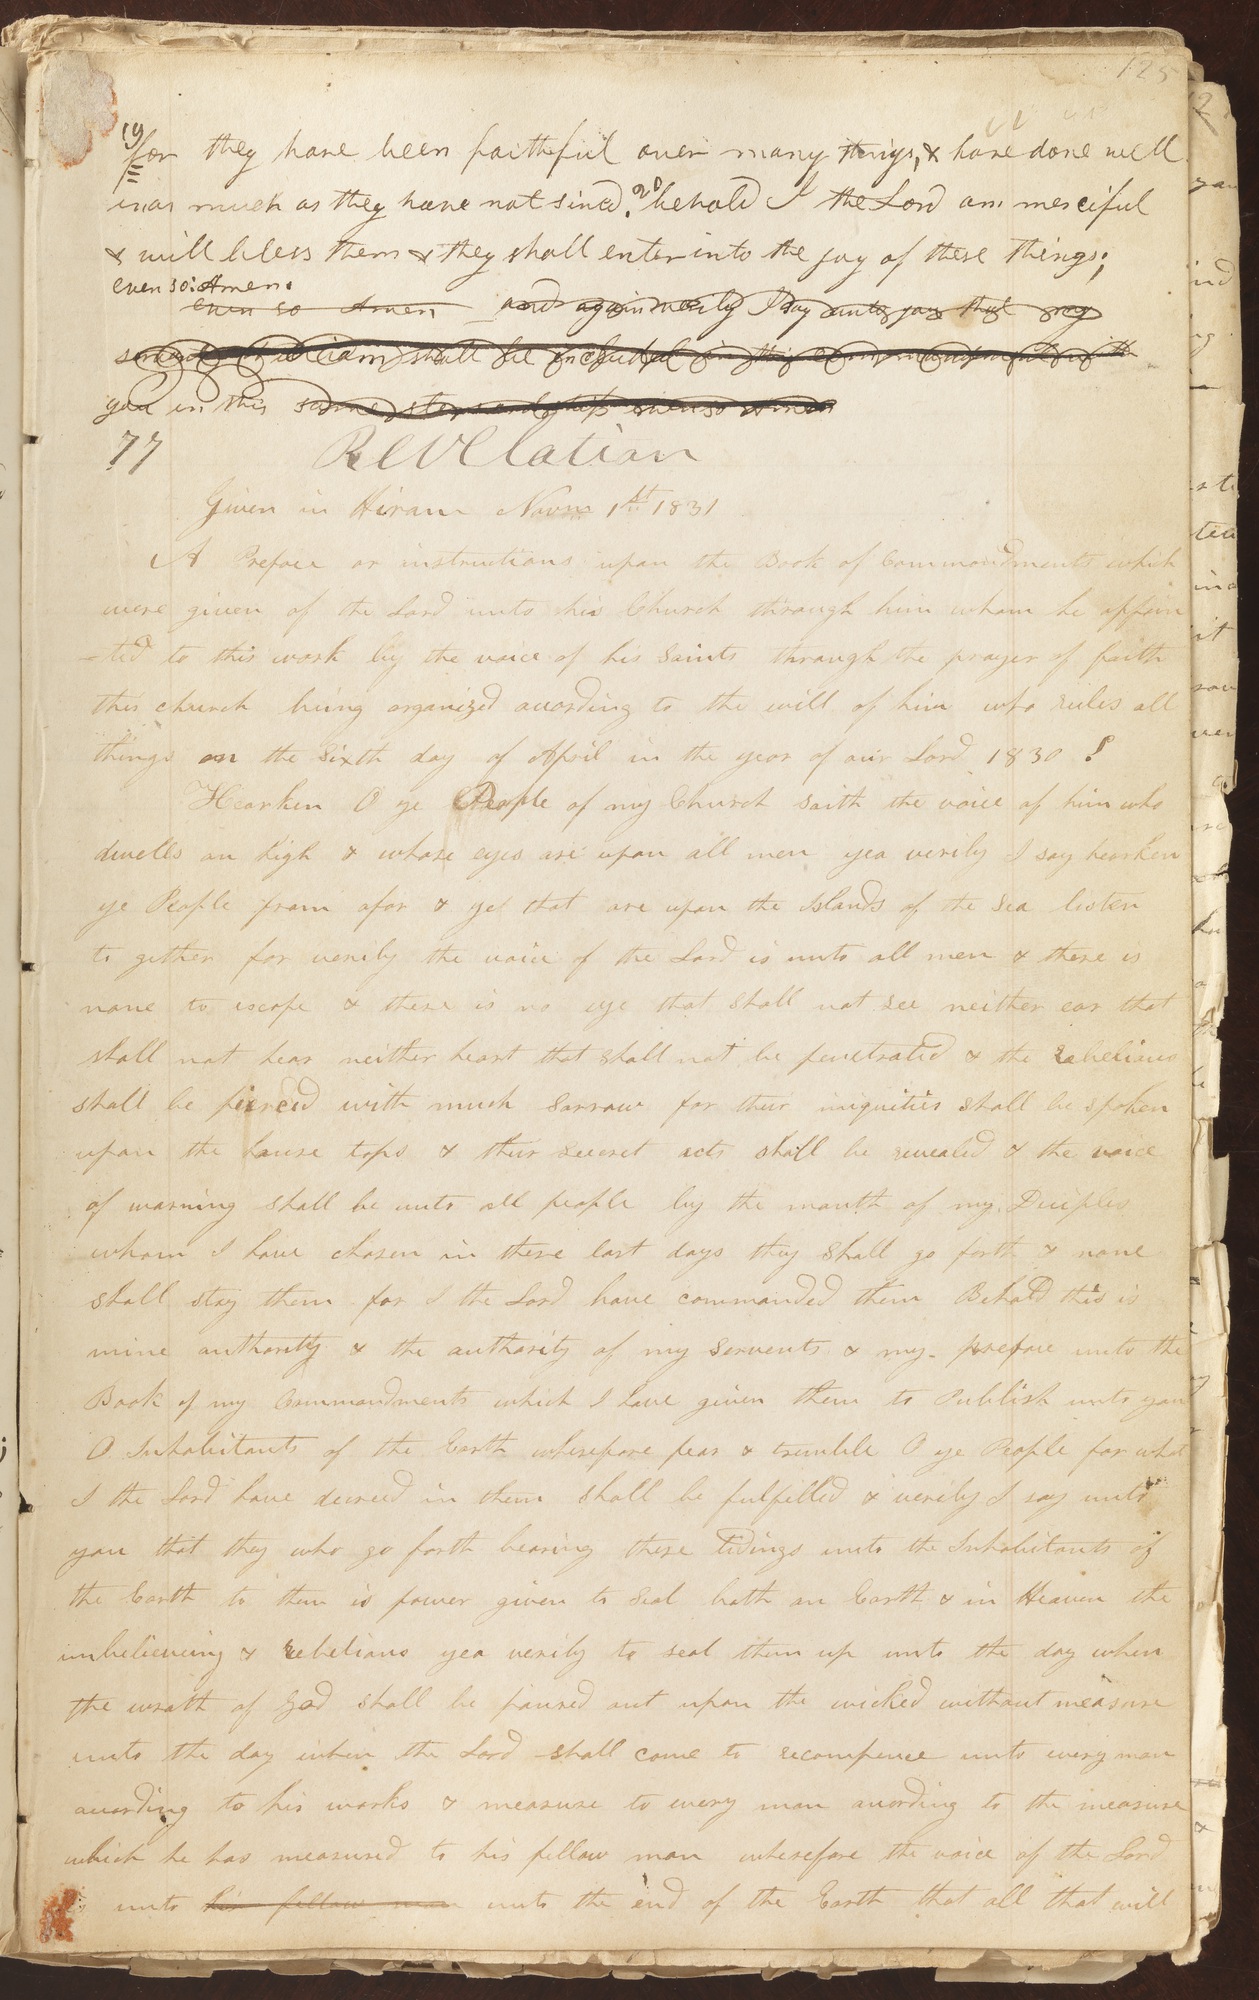 125
19 for they have been faithful over many things, & have done well
inas much as they have not sin[e]d. 20 behold I the Lord am merciful
& will bless them & they shall enter into the joy of these things;
even so. Amen.
even so Amen and again verily I say unto you that my
servent William shall be included in this commandment with
you in this same stewardship even so amen
77 Revelation
Given in Hiram Novm 1st 1831
A Preface or instructions upon the Book of Commandments which
were given of the Lord unto his Church through him whom he appoin
-ted to this work by the voice of his Saints through the prayer of faith
this church being organized acording to the will of him who rules all
things on the Sixth day of April in the year of our Lord 1830
Hearken O ye People of my Church saith the voice of him who
dwells on high & whose eyes are upon all men yea verily I say hearken
ye People from afar & ye that are upon the Islands of the Sea listen
to gether for verily the voice of the Lord is unto all men & there is
none to escape & there is no eye that shall not see neither ear that
shall not hear neither heart that shall not be penetrated & the rebelious
shall be pierced with much sorrow for their iniquities shall be spoken
upon the house tops & their secret acts shall be revealed & the voice
of warning shall be unto all people by the mouth of my Diciples
whom I have chosen in these last days they shall go forth & none
shall stay them for I the Lord have commanded them Behold this is
mine authority & the authority of my Servents & my preface unto the
Book of my Commandments which I have given them to Publish unto you
O Inhabitants of the Earth wherefore fear & tremble O ye People for what
I the Lord have decreed in them shall be fulfilled & verily I say unto
you that they who go forth bearing these tidings unto the Inhabitants of
the Earth to them is power given to seal both on Earth & in Heaven the
unbelieveing & rebelious yea verily to seal them up unto the day when
the wrath of God shall be poured out upon the wicked without measure
unto the day when the Lord shall come to recompence unto every man
acording to his works & measure to every man acording to the measure
which he has measured to his fellow man wherefore the voice of the Lord
is unto his fellow man unto the end of the Earth that all that will